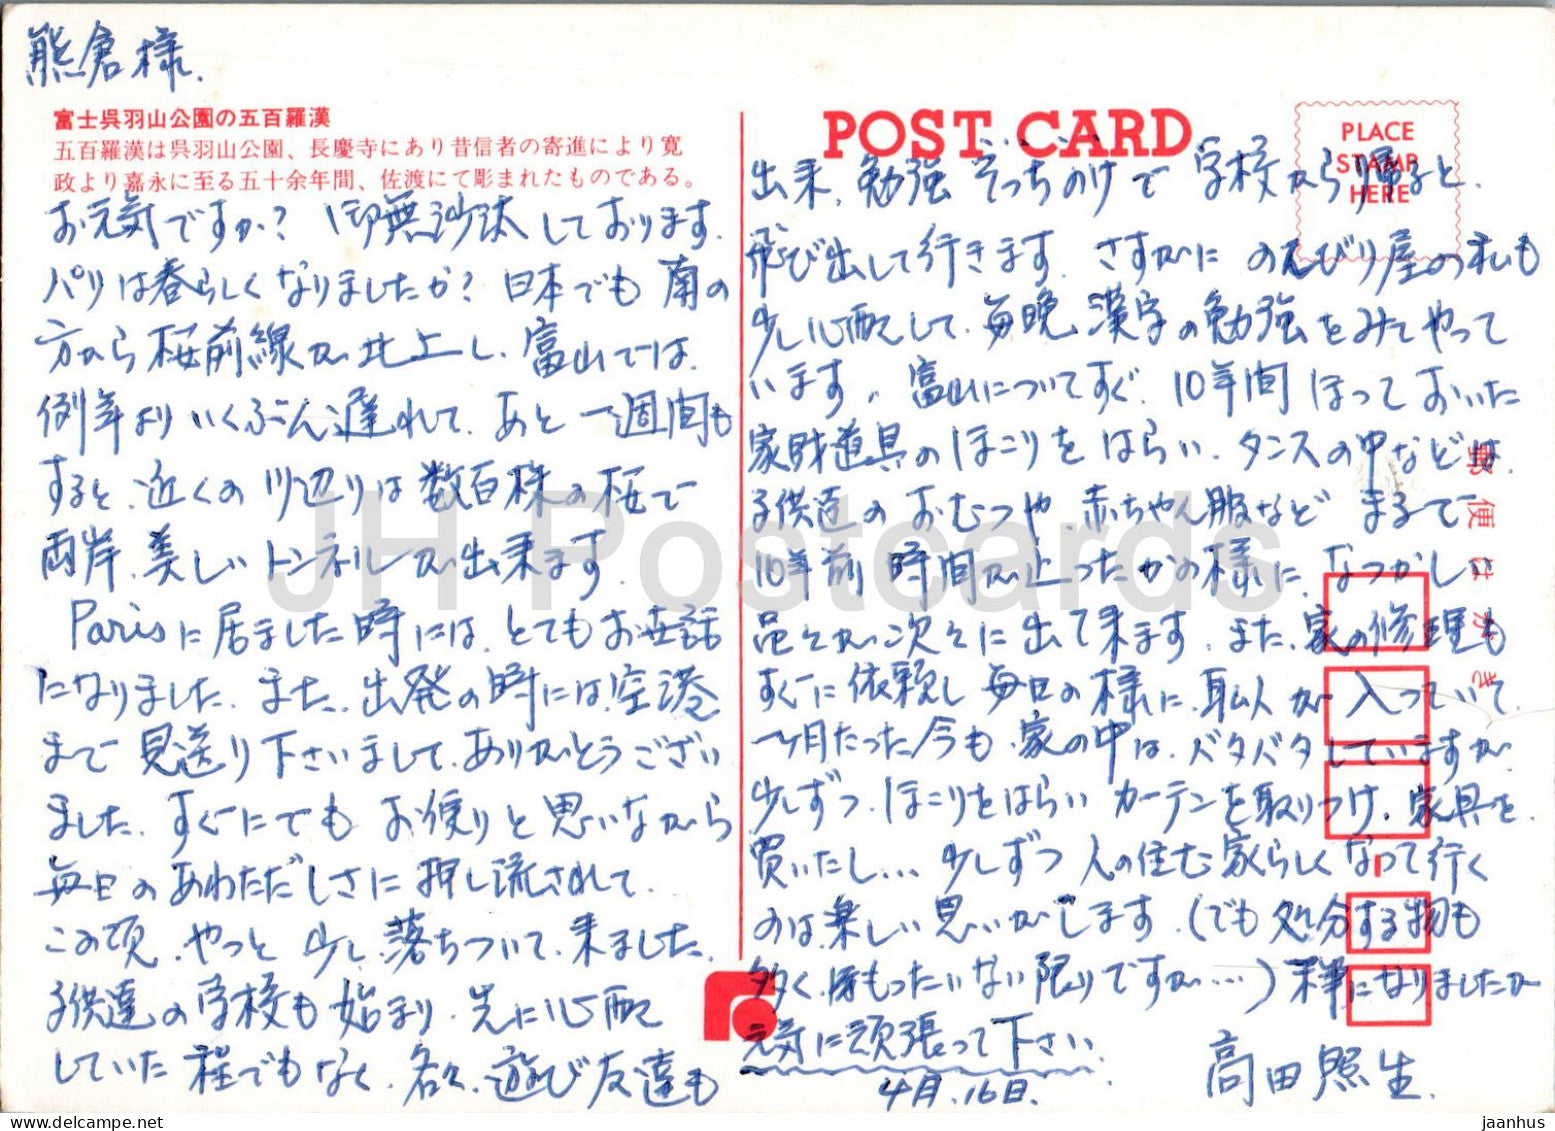 熊倉様.
富士呉羽山公園の五百羅漢
五百羅漢は呉羽山公園、長慶寺にあり昔信者の寄進により寛
政より嘉永に至る五十余年間、佐渡にて彫まれたものである。
お元気ですか? 御無沙汰しております.
パリは春らしくなりましたか? 日本でも南の
方から桜前線が北上し、富山では、
例年よりいくぶん遅れて、あと一週間も
すると、近くの川辺りは数百株の桜で
両岸、美しいトンネルが出来ます.
Parisに居ました時には、とてもお世話
になりました、また、出発の時には空港
まで見送り下さいまして、ありがとうござい
ました、すぐにでもお便りと思いながら
毎日のあわただしさに押し流されて、
この頃、やっと少し落ちついて、来ました.
子供達の学校も始まり、先に心配
していた程でもなく、各々、遊び友達も
POST CARD
PLACE
STAMP
HERE
出来、勉強そっちのけで学校から帰ると、
飛び出して行きます、さすがにのんびり屋の私も
少し心配して、毎晩漢字の勉強をみてやって
います、富山についてすぐ、10年間ほっておいた
家財道具のほこりをはらい、タンスの中などは、
子供達のおむつや、赤ちゃん服など まるで
10年前時間が止ったかの様に、なつかしい
品々が次々に出て来ます、また、家の修理も
すぐに依頼し毎日の様に、職人が入っていて、
一ヶ月たった今も、家の中は、バタバタしていますが
少しずつ、ほこりをはらいカーテンを取りつけ、家具を
買いたし... 少しずつ人の住む家らしくなって行く
のは楽しい思いがします、(でも処分する物も
多く、もったいない限りですが...) 乱筆になりましたが
元気に頑張って下さい.
4月.16日.
高田照生.
郵便はがき
JH Postcards
jaanhus